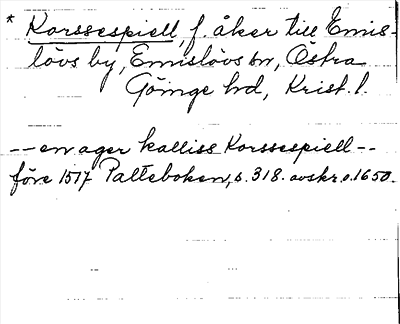 * Korssespiell, f. åker till Emis-
lövs by, Emislövs sn, Östra
Göinge hd, Krist. l.
-- en ager kalliss Korssespiell --
före 1517 Palteboken, s. 318. avskr. o. 1650.